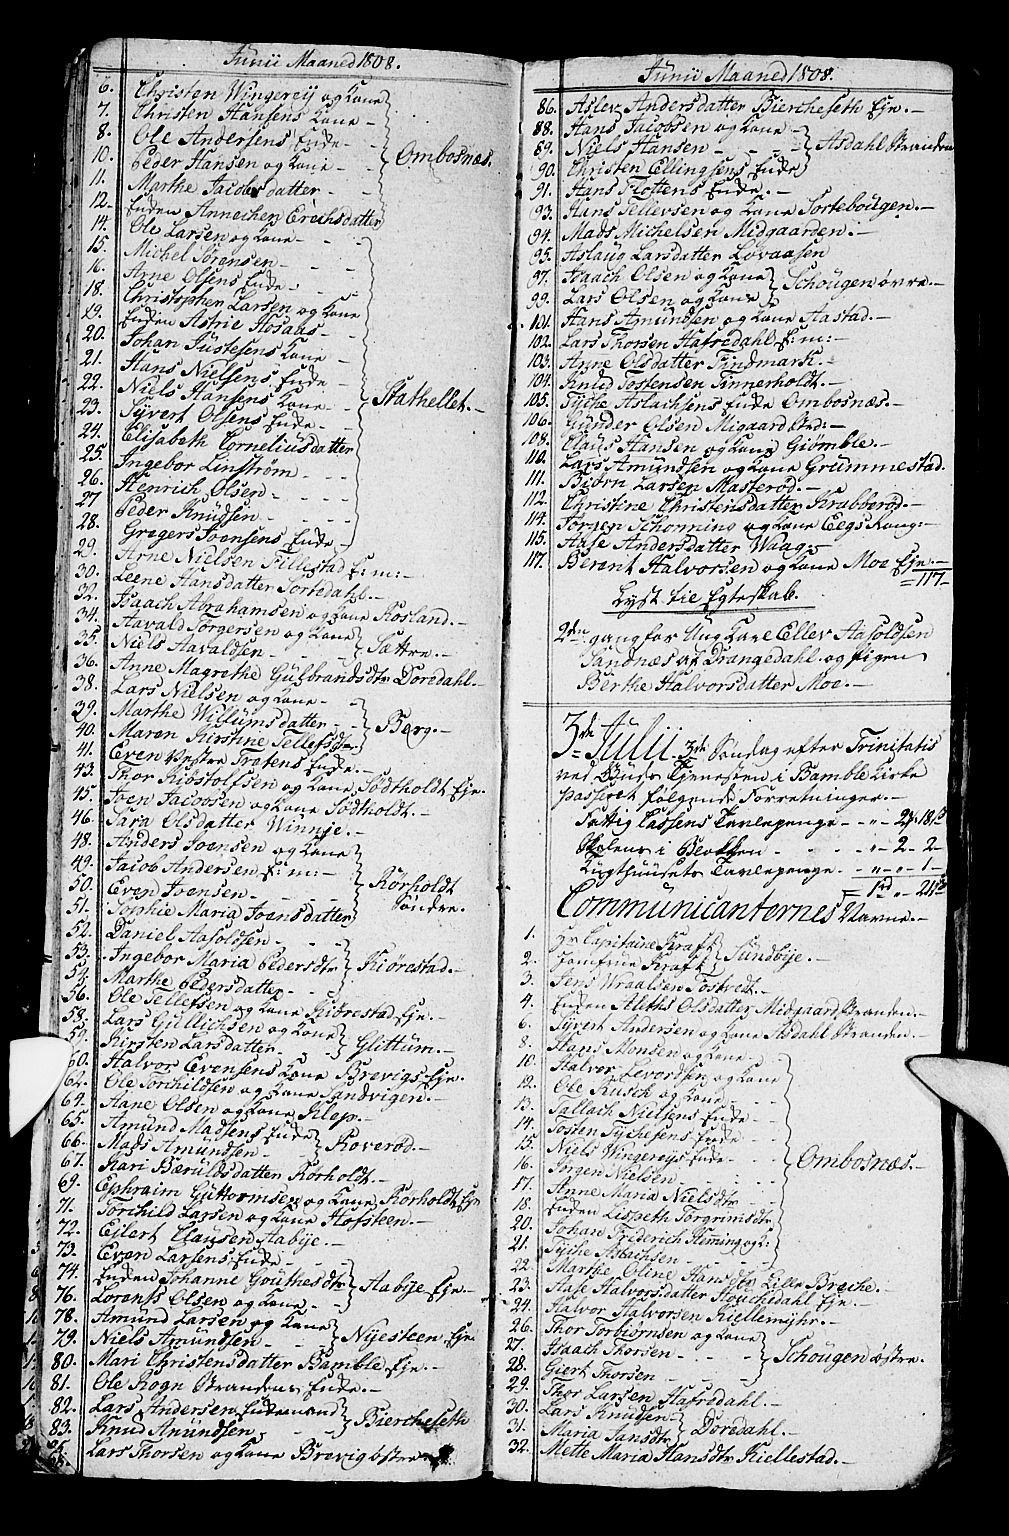 Junii Maaned 1808.
6. Christen Wingereij og Kone
7. Christen Hansens Kone -
8. Ole Andersens Enke -
10. Peder Hansen og Kone
Ombosnæs.
11. Marthe Jacobsdatter -
12. Enken Annechen Erichsdatter
14. Ole Larsen og Kone -
15. Michel Sørensen -
16. Arne Olsens Enke -
18. Christopher Larsen og Kone
19. Enken Astrie Aosaas -
20. Johan Justesens Kone
21. Hans Nielsens Enke -
22. Niels Hansens Kone -
Stathellet. -
23. Syvert Olsens Enke. -
24. Elisabeth Corneliusdatter
25. Ingebor Linström -
26. Henrich Olsen -
27 Peder Knudsen -
28. Gregers Joensens Enke -
29. Arne Nielsen Fillestad E: m: -
30. Leene Hansdatter Sortedahl. -
32. Isaach Abrahamsen og Kone Rosland. -
34. Aavald Torgersen og Kone
35. Niels Aavaldsen -
Sættre. -
36. Anne Magrethe Gulbrandsdtr Doredahl. -
38. Lars Nielsen og Kone -
39. Marthe Willumsdatter -
Berg. -
40. Maren Kirstine Tellefsdtr.
41. Even Trotens Enke. -
43. Thor Kibsfolfsen og Kone Södtholdt Eje
45. Joen Jacobsen og Kone Södtholdt. -
46. Sara Olsdatter Winnje. -
48. Anders Joensen og Kone
49. Jacob Andersen E: m: -
50. Even Joensen -
Rörholdt Söndre.
51. Sophie Maria Joensdatter
52. Daniel Aasoldsen
53. Ingebor Maria Pedersdtr
Kiörestad. -
54. Marthe Pedersdatter -
56. Ole Tellefsen og Kone Kiörestad Eje -
58. Lars Gullichsen og Kone
59. Kirsten Larsdatter -
Glittum. -
60. Halvor Evensens Kone Brevigs Eje.
62. Ole Torchildsen og Kone Landvigen. -
64. Aane Olsen og Kone Klep. -
65. Amund Madsens Enke
66. Mads Amundsen -
Roverød. -
67. Kari Bæruldsdatter Rorholdt. -
69. Ephraim Guttormsen og Kone Rorholdt Eje
71. Torchild Larsen og Kone Hofsteen. -
72. Ejlert Clausen Aabije. -
73. Even Larsens Enke
74. Enken Johanne Gouthesdtr
Aabije Eje -
76. Lorents Olsen og Kone -
78. Amund Larsen og Kone
79. Niels Amundsen -
Nijesteen Eje
80. Mari Christensdatter Bamble Eje. -
81. Ole Rogn Strandens Enke. -
82. Lars Andersen Enkemand
83. Knud Amundsen -
Biercheseth
85. Lars Thorsen og Kone Brevigböstre
Junii Maaned 1808.
86. Aslev Andersdatter Biercheseth Eje. -
88. Hans Jacobsen og Kone
89. Niels Hansen -
Asdahl Stranden
90. Christen Ellingsens Enke
91. Hans Flottens Enke. -
93. Hans Tellevsen og Kone Sortebougen. -
94. Mads Michelsen Midgaarden. -
95. Aslaug Larsdatter Lovaasen
97. Isaach Olsen og Kone
Schougen øvre. -
99. Lars Olsen og Kone
101. Hans Amundsen og Kone Aastad. -
102. Lars Thorsen Hafredahl E: m: -
103. Anne Olsdatter Findmark. -
104. Knud Tostensen Tinnerholdt. -
105. Tyche Aslachsens Enke Ombosnæs. -
106. Gunder Olsen Migaard Str: -
108. Claus Hansen og Kone Giömble. -
110. Lars Amundsen og Kone Grummestad.
111. Biörn Larsen Masteröd. -
112. Christine Christensdatter Krabberöd. -
114. Jorgen Schonning og Kone Eegs Kong: -
115. Aase Andersdatter Waag -
117. Berent Halvorsen og Kone Moe Eje -
= 117 -
Lyst til Egteskab.
2den gang for Ung Karl Ellev Aasoldsen
Sandnæs af Drangedahl og Pigen
Berthe Halvorsdatter Moe. -
3de Julii 3de Söndag efter Trinitatis
ved Guds Tjenesten i Bamble Kirke
passeret følgende Forretninger. -
Fattig Cassens Tavlepenge - - " - 2 - 18 ß
Skolens i Blokken - - - " - 2 - 2 -
Tugthuusets Tavlepenge. - " - " - 1 -
= 1rd " - 21 ß
Communicanternes Navne. -
1. Hr Capitaine Kraft
2. Jomfrue Kraft
Sundbije. -
3. Jens Wraalsen Tostvedt. -
4. Enken Aleths Olsdatter Midgaard Stranden. -
6. Syvert Andersen og Kone Asdahl Stranden. -
8. Hans Monsen og Kone -
10. Halvor Levordsen og Kone
12. Ole Kusch og Kone -
13. Tallach Nielsens Enke
14. Tosten Tychesens Enke -
15. Niels Wingereijs Enke -
Ombosnæs. -
16. Jørgen Nielsen -
17. Anne Maria Nielsdtr
18. Enken Lispeth Torgrimsdtr
20. Johan Friderich Fleming og K:
21. Tyche Aslachsen -
22. Marthe Oline Hansdtr Lille Breche. -
23. Aase Halvorsdatter Houchedahl Eje. -
24. Halvor Halvorsen Kiellemyhr. -
26. Thor Torbiörnsen og Kone
27. Isaach Thorsen -
Schougen østre.
28. Giert Thorsen -
29. Thor Larsen Hafredahl. -
30. Lars Knudsen
31. Maria Jansdtr
Doredahl. -
32. Mette Maria Hansdtr Kiellestad. -